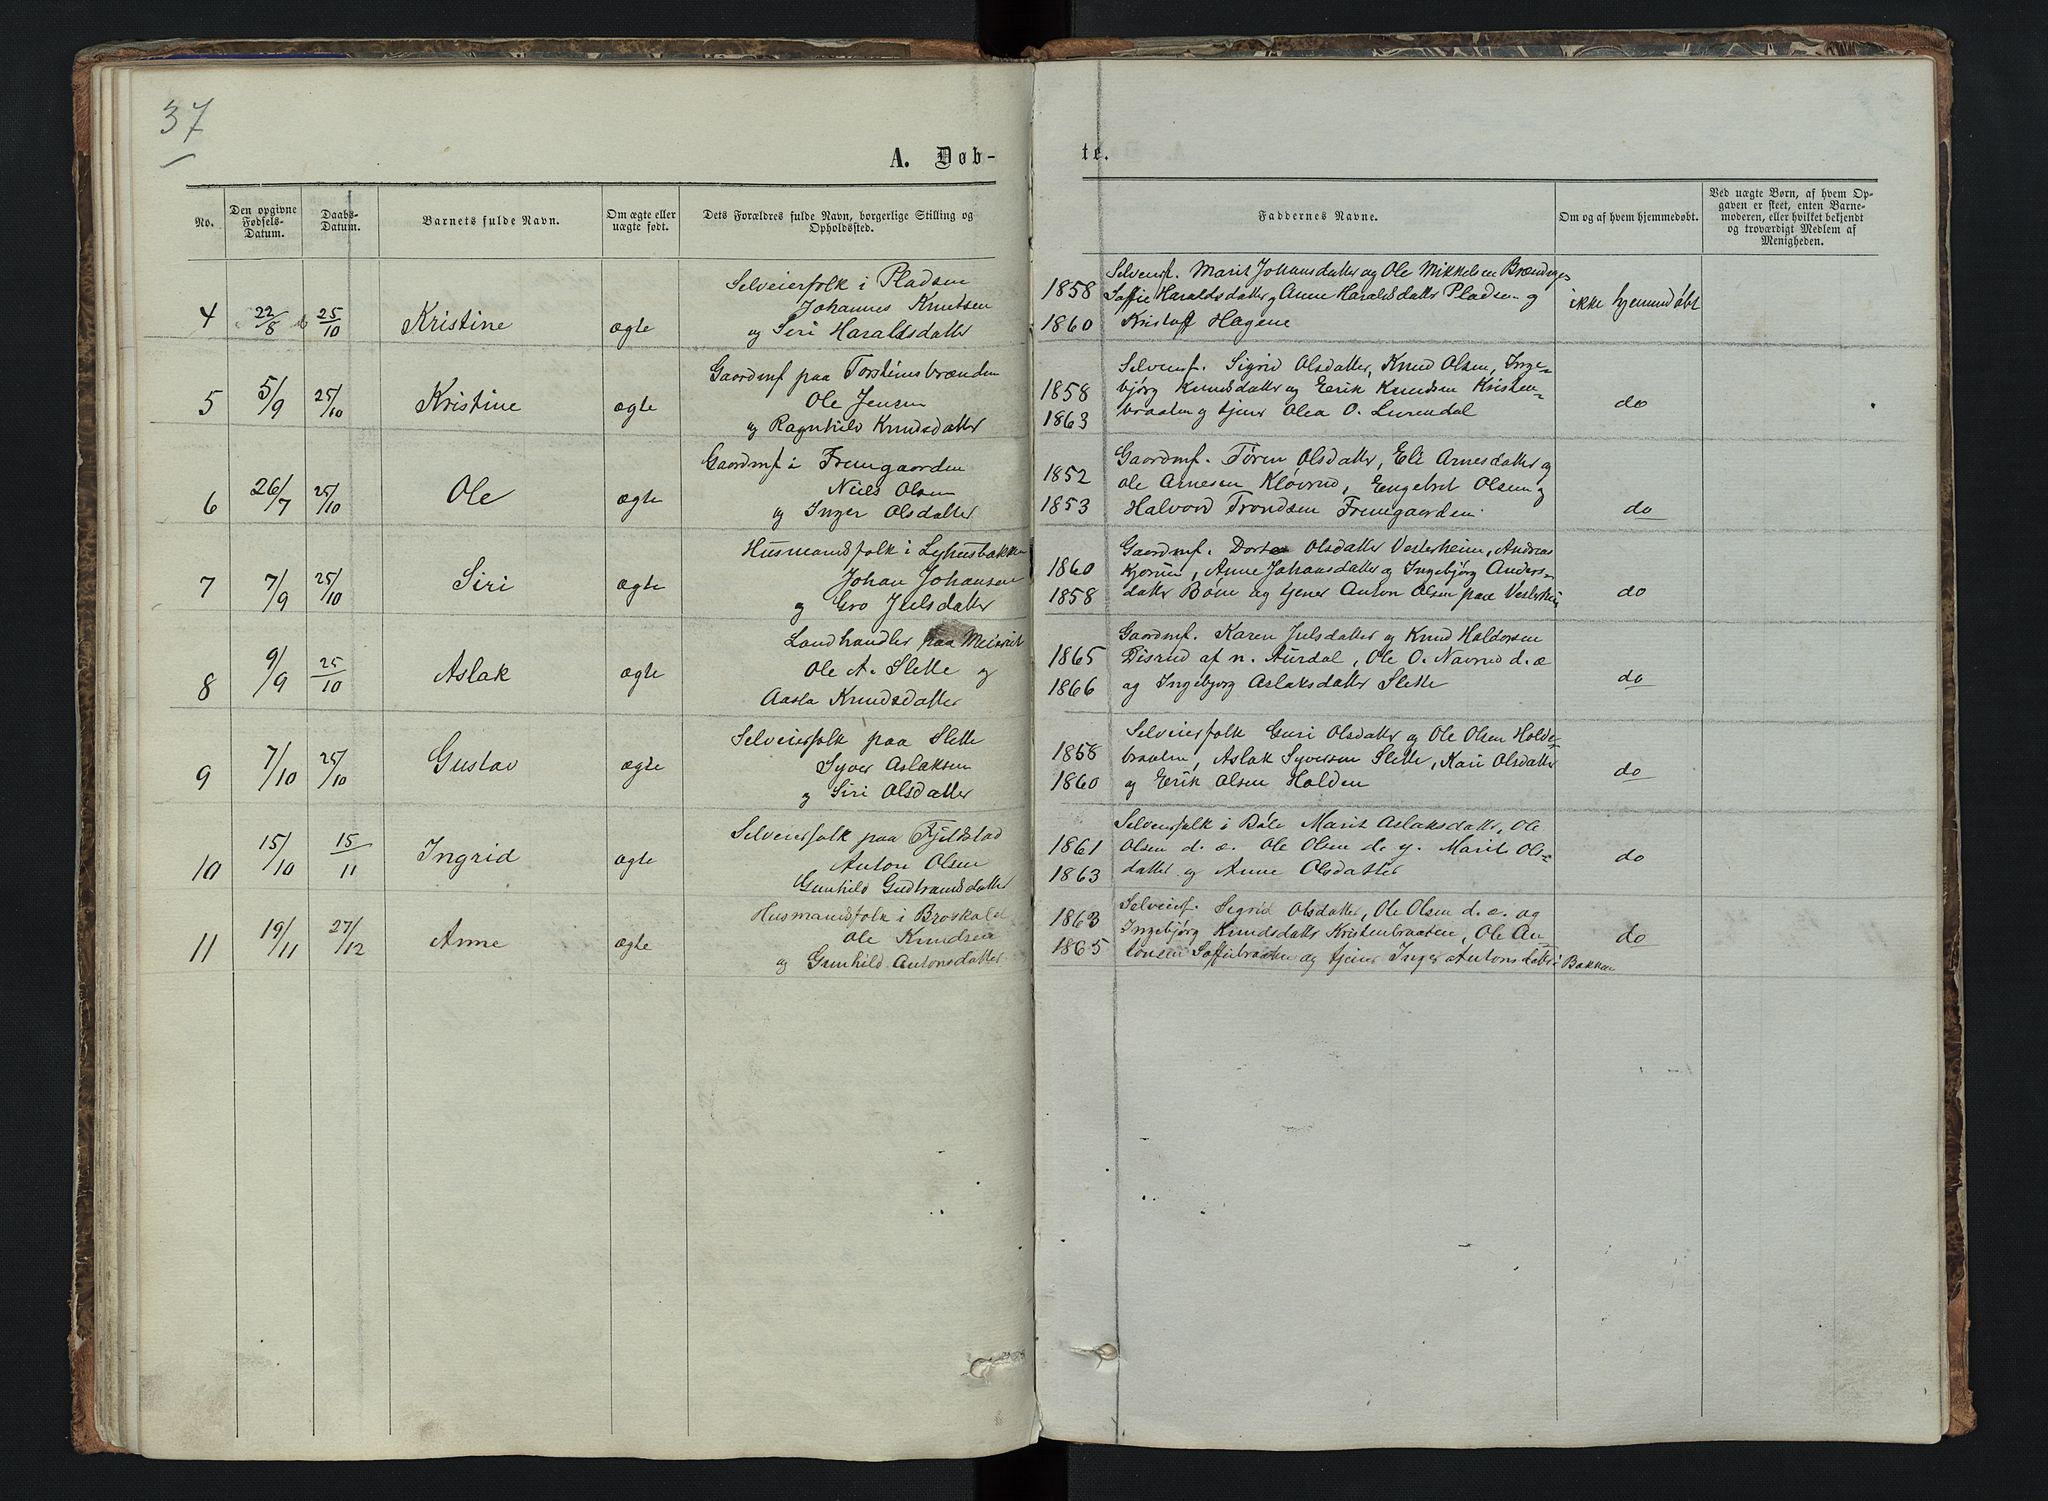 37
A. Døb-
te.
No.
Den opgivne Fødsels-Datum.
Daabs-Datum.
Barnets fulde Navn.
Om ægte eller uægte født.
Dets Forældres fulde Navn, borgerlige Stilling og Opholdssted.
Faddernes Navne.
Om og af hvem hjemmedøbt.
Ved uægte Børn, af hvem Opgaven er skeet, enten Barnemoderen, eller hvilket bekjendt og troværdigt Medlem af Menigheden.
4 22/8 25/10 Kristine ægte
Selveierfolk i Pladsen
Johannes Knutsen
og Siri Haraldsdatter
1858
1860
Selveierf. Marit Johansdatter og Ole Mikkelsen Brændiges
Soffie Haraldsdatter og Anne Haraldsdatter Pladsen og
Kristoff Hagene
ikke hjemmedøbt
5 5/9 25/10 Kristine ægte
Gaardmf paa Torsteinsbrænden
Ole Jensen
og Ragnhild Knudsdatter
1858
1863
Selveierf. Sigrid Olsdatter, Knud Olsen, Inge-
bjørg Knudsdatter og Eerik Knudsen Kristen-
braaten og tjener Olea O. Lunendal
do
6 26/7 25/10 Ole ægte
Gaardmf i Fremgaarden
Niels Olsen
og Inger Olsdatter
1852
1853
Gaardmf. Tören Olsdatter, Eli Arnesdatter og
Ole Arnesen Kløvrud, Eengebret Olsen og
Halvord Trondsen Fremgaarden
do
7 7/9 25/10 Siri ægte
Husmandsfolk i Lyhusbakken
Johan Johansen
og Gro Julsdatter
1860
1858
Gaardmf. Dorte Olsdatter Vesterheim, Andreas
Kjorum, Anne Johansdatter og Ingebjørg Anders-
datter Bøne og tjener Anton Olsen paa Vesterheim
do
8 9/9 25/10 Aslak ægte
Landhandler paa
Ole A. Slette og
Aasta Knudsdatter
1865
1866
Gaardmf. Karen Julsdatter og Knud Haldorsen
Disrud af n. Aurdal, Ole O. Navrud d. æ
og Ingebjørg Aslaksdatter Slette
do
9 7/10 25/10 Gustav ægte
Selveierfolk paa Slette
Syver Aslaksen
og Siri Olsdatter
1858
1860
Selveierfolk Guri Olsdatter og Ole Olsen Holde-
braaten, Aslak Syversen Slette, Kari Olsdatter
og Erik Olsen Holden
do
10 15/10 15/11 Ingrid ægte
Selveierfolk paa Fjeldstad
Anton Olsen
Gunhild Gudbrandsdatter
1861
1863
Selveierfolk i Bøle Marit Aslaksdatter, Ole
Olsen d. æ. Ole Olsen d. y. Marit Ols-
datter og Anne Olsdatter
do
11 19/11 27/12 Anne ægte
Husmandsfolk i Broskald
Ole Knudsen
og Gunhild Antonsdatter
1863
1865
Selveierf. Sigrid Olsdatter, Ole Olsen d. æ. og
Ingebjørg Knudsdatter Kristenbraaten, Ole An-
tonsen Soffiebraaten og tjener Inger Antonsdatter i Bakken
do